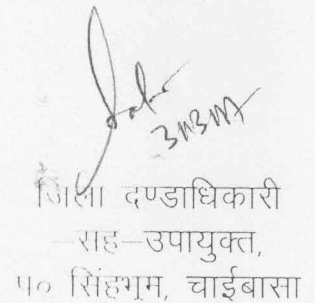 जिला दण्डाधिकारी
–सह–उपायुक्त,
प० सिंहभूम, चाईबासा